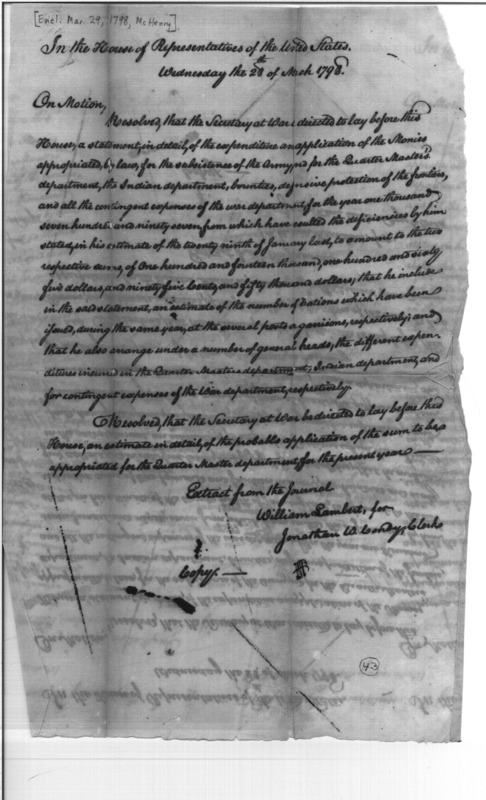 [Encl. Mar. 29, 1798, McHenry]
In the House of Representatives of the United States.
Wednesday the 28th of March 1798.
On Motion,
Resolved, that the Secretary at War be directed to lay before this
House, a statement, in detail, of the expenditure and application of the Monies
appropriated, by law, for the subsistence of the Army, and for the Quarter Master's
department, the Indian department, bounties, defensive protection of the frontiers,
and all the contingent expenses of the war department, for the year one thousand
seven hundred and ninety seven from which have resulted the deficiencies by him
stated, in his estimate of the twenty ninth of January last, to amount to the two
respective sums, of One hundred and fourteen thousand, one hundred and sixty
five dollars, and ninety five Cents, and fifty thousand dollars; that he include
in the said statement, an estimate of the number of rations which have been
issued, during the same year, at the several posts or garrisons, respectively; and
that he also arrange under a number of general heads, the different expen-
ditures incurred in the Quarter Master's department, Indian department, and
for contingent expenses of the War department, respectively.
Resolved, that the Secretary at War be directed to lay before this
House, an estimate in detail, of the probable application of the sum to be
appropriated for the Quarter Master department, for the present year
Extract from the Journal
William Lambert, for
Jonathan W. Condy, Clerk
Copy.
43